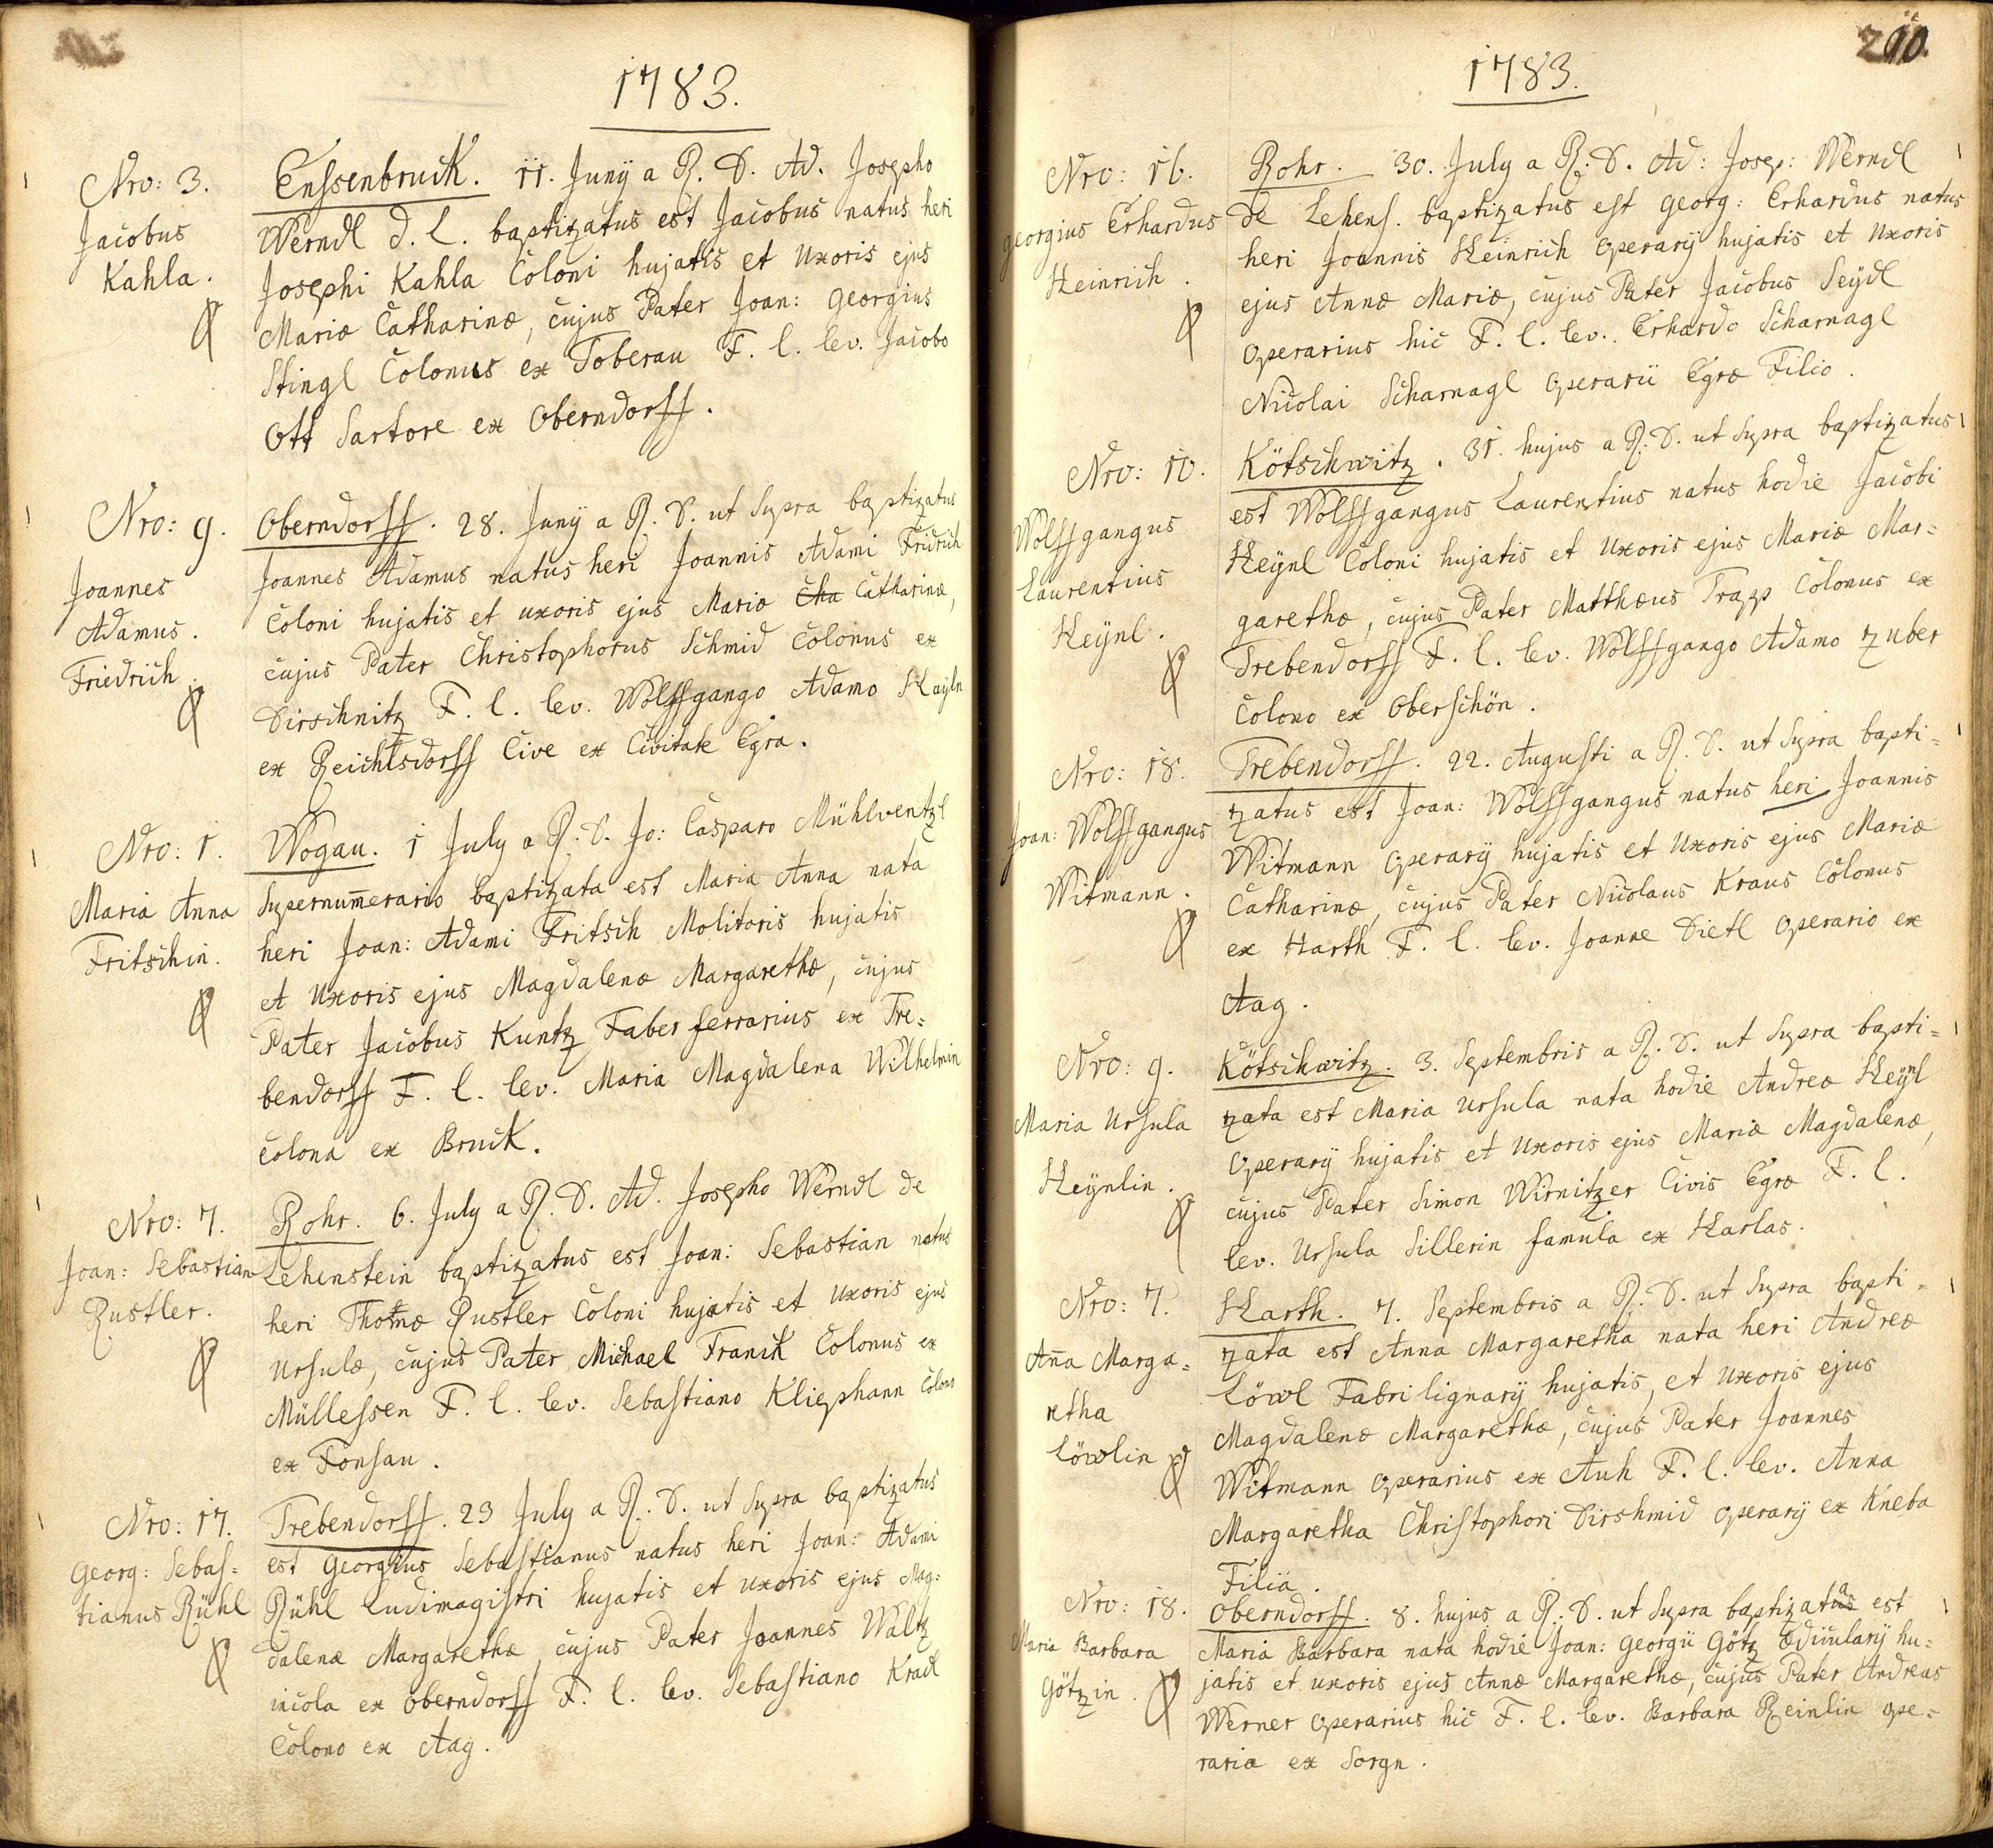 1783.
Nro: 3.
Jacobus
Kahla.
Ensenbruck. 11. Juny a R. D. Ad. Josepho
Werndl d. L. baptizatus est Jacobus natus heri
Josephi Kahla Coloni hujatis et Uxoris ejus
Mariæ Catharinæ, cujus Pater Joan: Georgius
Stingl Colonus ex Toberau F. l. lev. Jacobo
Ott Sartore ex Oberndorff.
Nro: 9.
Joannes
Adamus.
Friedrich.
Oberndorff. 28. Juny a R. D. ut Supra baptizatus
Joannes Adamus natus heri Joannis Adami Fridrich
Coloni hujatis et uxoris ejus Mariæ Catharinæ,
cujus Pater Christophorus Schmid Colonus ex
Dirschnitz F. l. lev. Wolffgango Adamo Hayln
ex Reichtsdorff Cive ex Civitate Egra.
Nro: 1.
Maria Anna
Fritschin.
Wogau. 1 July a R. D. Jo: Casparo Mühlventzl
Supernum̄erario baptizata est Maria Anna nata
heri Joan: Adami Fritsch Molitoris hujatis
et Uxoris ejus Magdalenæ Margarethæ, cujus
Pater Jacobus Kuntz Faber ferrarius ex Tre=
bendorff F. l. lev. Maria Magdalena Wilhelmin
Colona ex Bruck.
Nro: 7.
Joan: Sebastian
Rustler.
Rohr. 6. July a R. D. Ad. Josepho Werndl de
Lehenstein baptizatus est Joan: Sebastian natus
heri Thomæ Rustler Coloni hujatis et Uxoris ejus
Ursulæ, cujus Pater Michael Franck Colonus ex
Müllessen F. l. lev. Sebastiano Kliephann Colono
ex Fonsau.
Nro: 17.
Georg: Sebas=
tianus Rühl
Trebendorff. 23 July a R. D. ut Supra baptizatus
est Georgius Sebastianus natus heri Joan: Adami
Rühl Ludimagistri hujatis et uxoris ejus Mag=
dalenæ Margarethæ, cujus Pater Joannes Waltz
incola ex Oberndorff F. l. lev. Sebastiano Kradl
Colono ex Aag.
210.
1783.
Nro: 16.
Georgius Erhardus
Heinrich.
Rohr. 30. July a R. D. Ad: Josep: Werndl
de Lehens. baptizatus est Georg: Erhardus natus
heri Joannis Heinrich Operarÿ hujatis et Uxoris
ejus Annæ Mariæ, cujus Pater Jacobus Seÿdl
Operarius hic F. l. lev. Erhardo Scharnagl
Nicolai Scharnagl Operarii Egræ Filio.
Nro: 10.
Wolffgangus
Laurentius
Heÿnl.
Kötschwitz. 31. hujus a R. D. ut Supra baptizatus
est Wolffgangus Laurentius natus hodie Jacobi
Heÿnl Coloni hujatis et Uxoris ejus Mariæ Mar=
garethæ, cujus Pater Matthæus Trapp Colonus ex
Trebendorff F. l. lev. Wolffgango Adamo Zuber
Colono ex Oberschön.
Nro: 18.
Joan: Wolffgangus
Witmann.
Trebendorff. 22. Augusti a R. D. ut Supra bapti=
zatus est Joan: Wolffgangus natus heri Joannis
Witmann Operarÿ hujatis et Uxoris ejus Mariæ
Catharinæ, cujus Pater Nicolaus Kraus Colonus
ex Harth F. l. lev. Joanne Dietl Operario ex
Aag.
Nro: 9.
Maria Ursula
Heÿnlin.
Kötschwitz. 3. Septembris a R. D. ut Supra bapti=
zata est Maria Ursula nata hodie Andreæ Heÿnl
Operarÿ hujatis et Uxoris ejus Mariæ Magdalenæ,
cujus Pater Simon Wirnitzer Civis Egræ F. l.
lev. Ursula Sillerin famula ex Harlas.
Nro: 7.
An̄a Marga=
retha
Löwlin
Harth. 7. Septembris a R. D. ut Supra bapti=
zata est Anna Margaretha nata heri Andreæ
Löwl Fabri lignarÿ hujatis, et Uxoris ejus
Magdalenæ Margarethæ, cujus Pater Joannes
Witmann Operarius ex Auh F. l. lev. Anna
Margaretha Christophori Dirshmid Operarÿ ex Kneba
Filia.
Nro: 18.
Maria Barbara
Götzin.
Oberndorff. 8. hujus a R. D. ut Supra baptizata est
Maria Barbara nata hodie Joan: Georgii Götz Ædicularÿ hu=
jatis et uxoris ejus Annæ Margarethæ, cujus Pater Andreas
Werner Operarius hic F. l. lev. Barbara Reinlin ope=
raria ex Sorgn.